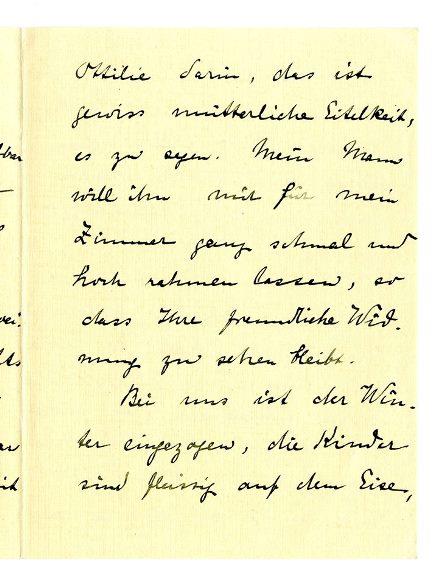 Ottilie darin, das ist
gewiss mütterliche Eitelkeit,
es zu sagen. Mein Mann
will ihn mir für mein
Zimmer ganz schmal und
hoch rahmen lassen, so
dass Ihre freundliche Wid-
mung zu sehen bleibt.
Bei uns ist der Win-
ter eingezogen, die Kinder
sind fleissig auf dem Eise,